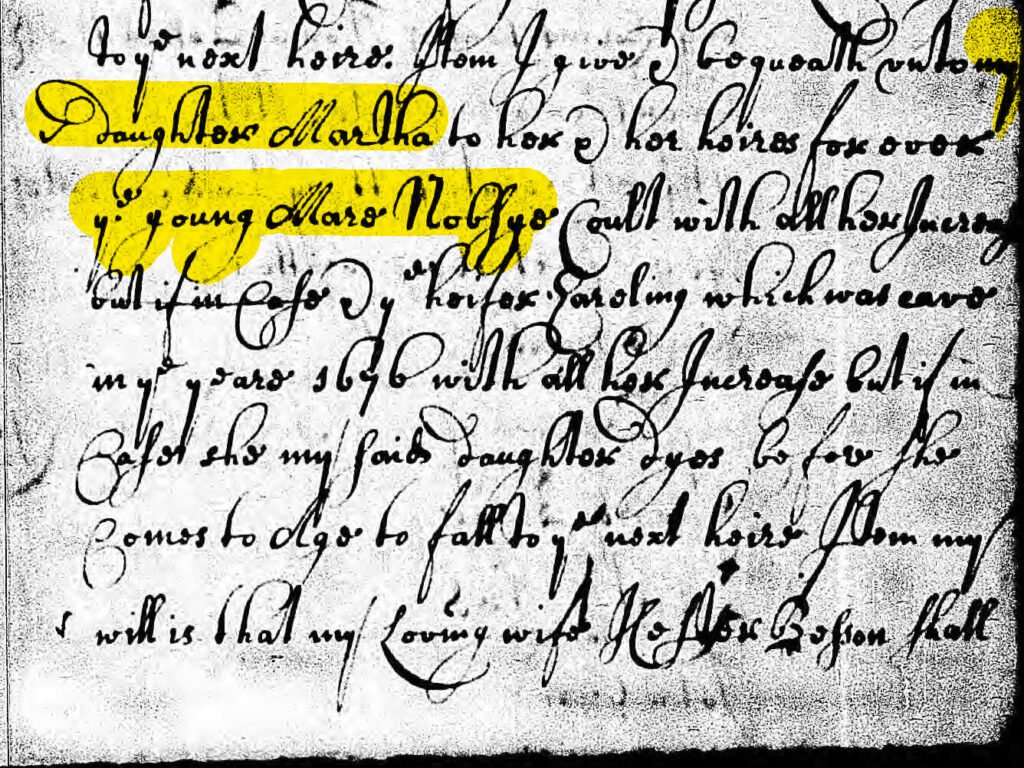 to yᵉ next heire. Item I give & bequeath unto my
daughter Martha to her & her heires for ever
yᵉ young Mare Nobsye Coult with all her Increas
but if in Case & yᵉ heifer Yareling which was cave
in yᵉ yeare 1676 with all her Increase but if in
Case she my said daughter dyes before she
Comes to Age to fall to yᵉ next heire Item my
will is that my Loving wife Hester Besson shall